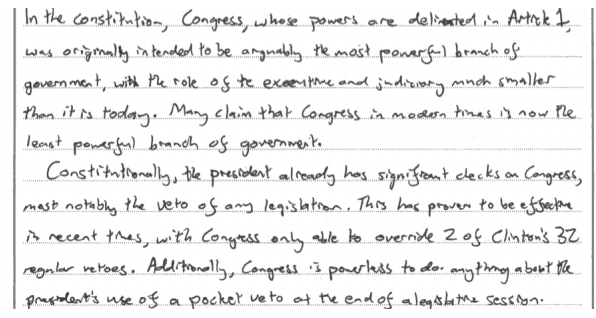 In the constitution, Congress, whose powers are delineated in Article 1,
was originally intended to be arguably the most powerful branch of
government, with the role of the executive and judiciary much smaller
than it is today. Many claim that Congress in modern times is now the
least powerful branch of government.
Constitutionally, the president already has significant checks on Congress,
most notably the veto of any legislation. This has proven to be effective
in recent times, with Congress only able to override 2 of Clinton's 32
regular vetoes. Additionally, Congress is powerless to do anything about the
president's use of a pocket veto at the end of a legislative session.